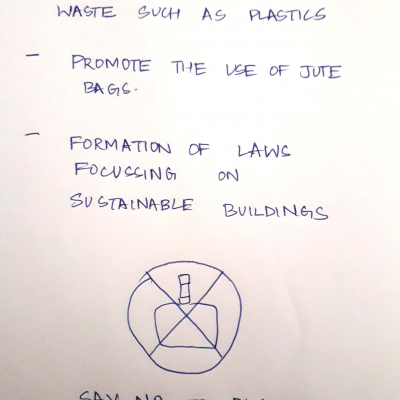 WASTE SUCH AS PLASTICS
- PROMOTE THE USE OF JUTE
BAGS.
- FORMATION OF LAWS
FOCUSSING ON
SUSTAINABLE BUILDINGS
SAY NO